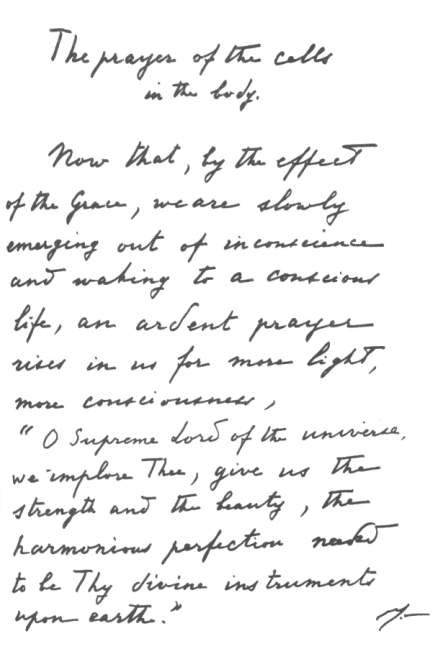 The prayer of the cells
in the body.
Now that, by the effect
of the Grace, we are slowly
emerging out of inconscience
and waking to a conscious
life, an ardent prayer
rises in us for more light,
more consciousness,
“O Supreme Lord of the universe,
we implore Thee, give us the
strength and the beauty, the
harmonious perfection needed
to be Thy divine instruments
upon earth.”